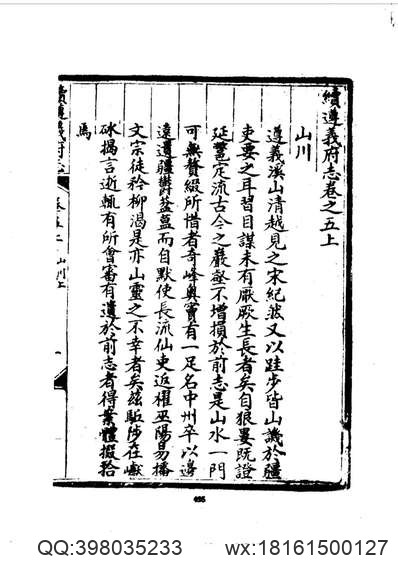 續遵義府志卷之五上
山川
遵義溪山清越見之宋紀然又以跬步皆山譏於疆
吏要之耳習目謀未有厭厥生長者矣自狼㬥既證
延𨟠定流古今之巖壑不增損於前志是山水一門
可無贅綴所惜者奇峰奧竇有一足名中州卒以邊
遠遺疆鬱藍而自默使長流仙吏近櫂巫陽易播
文宗徒矜柳渴是亦山靈之不幸者矣茲
涉在
砅揭言逝輒有所會審有遺於前志者得業體掇拾
焉
續遵義府志
卷五上 山川上
一
QQ:398035233 wx:18161500127